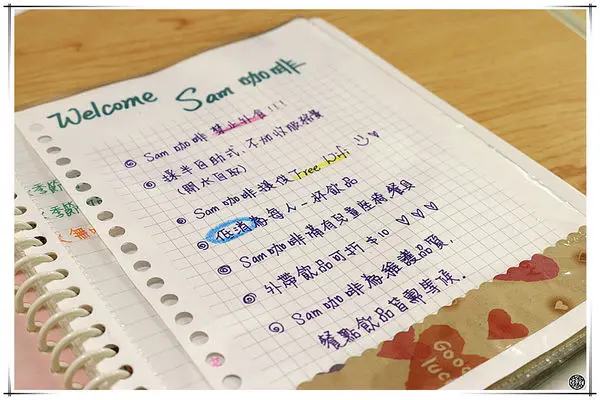 Welcome Sam 咖啡
Sam 咖啡 禁止外食!!!
採半自助式,不加收服務費
(開水自取)
Sam 咖啡提供 Free Wifi
低消為每人一杯飲品
Sam 咖啡備有兒童座椅、餐具
外帶飲品可折$10
Sam 咖啡為維護品質,
餐點飲品皆需等候.
季節
季節
無
Good
luc